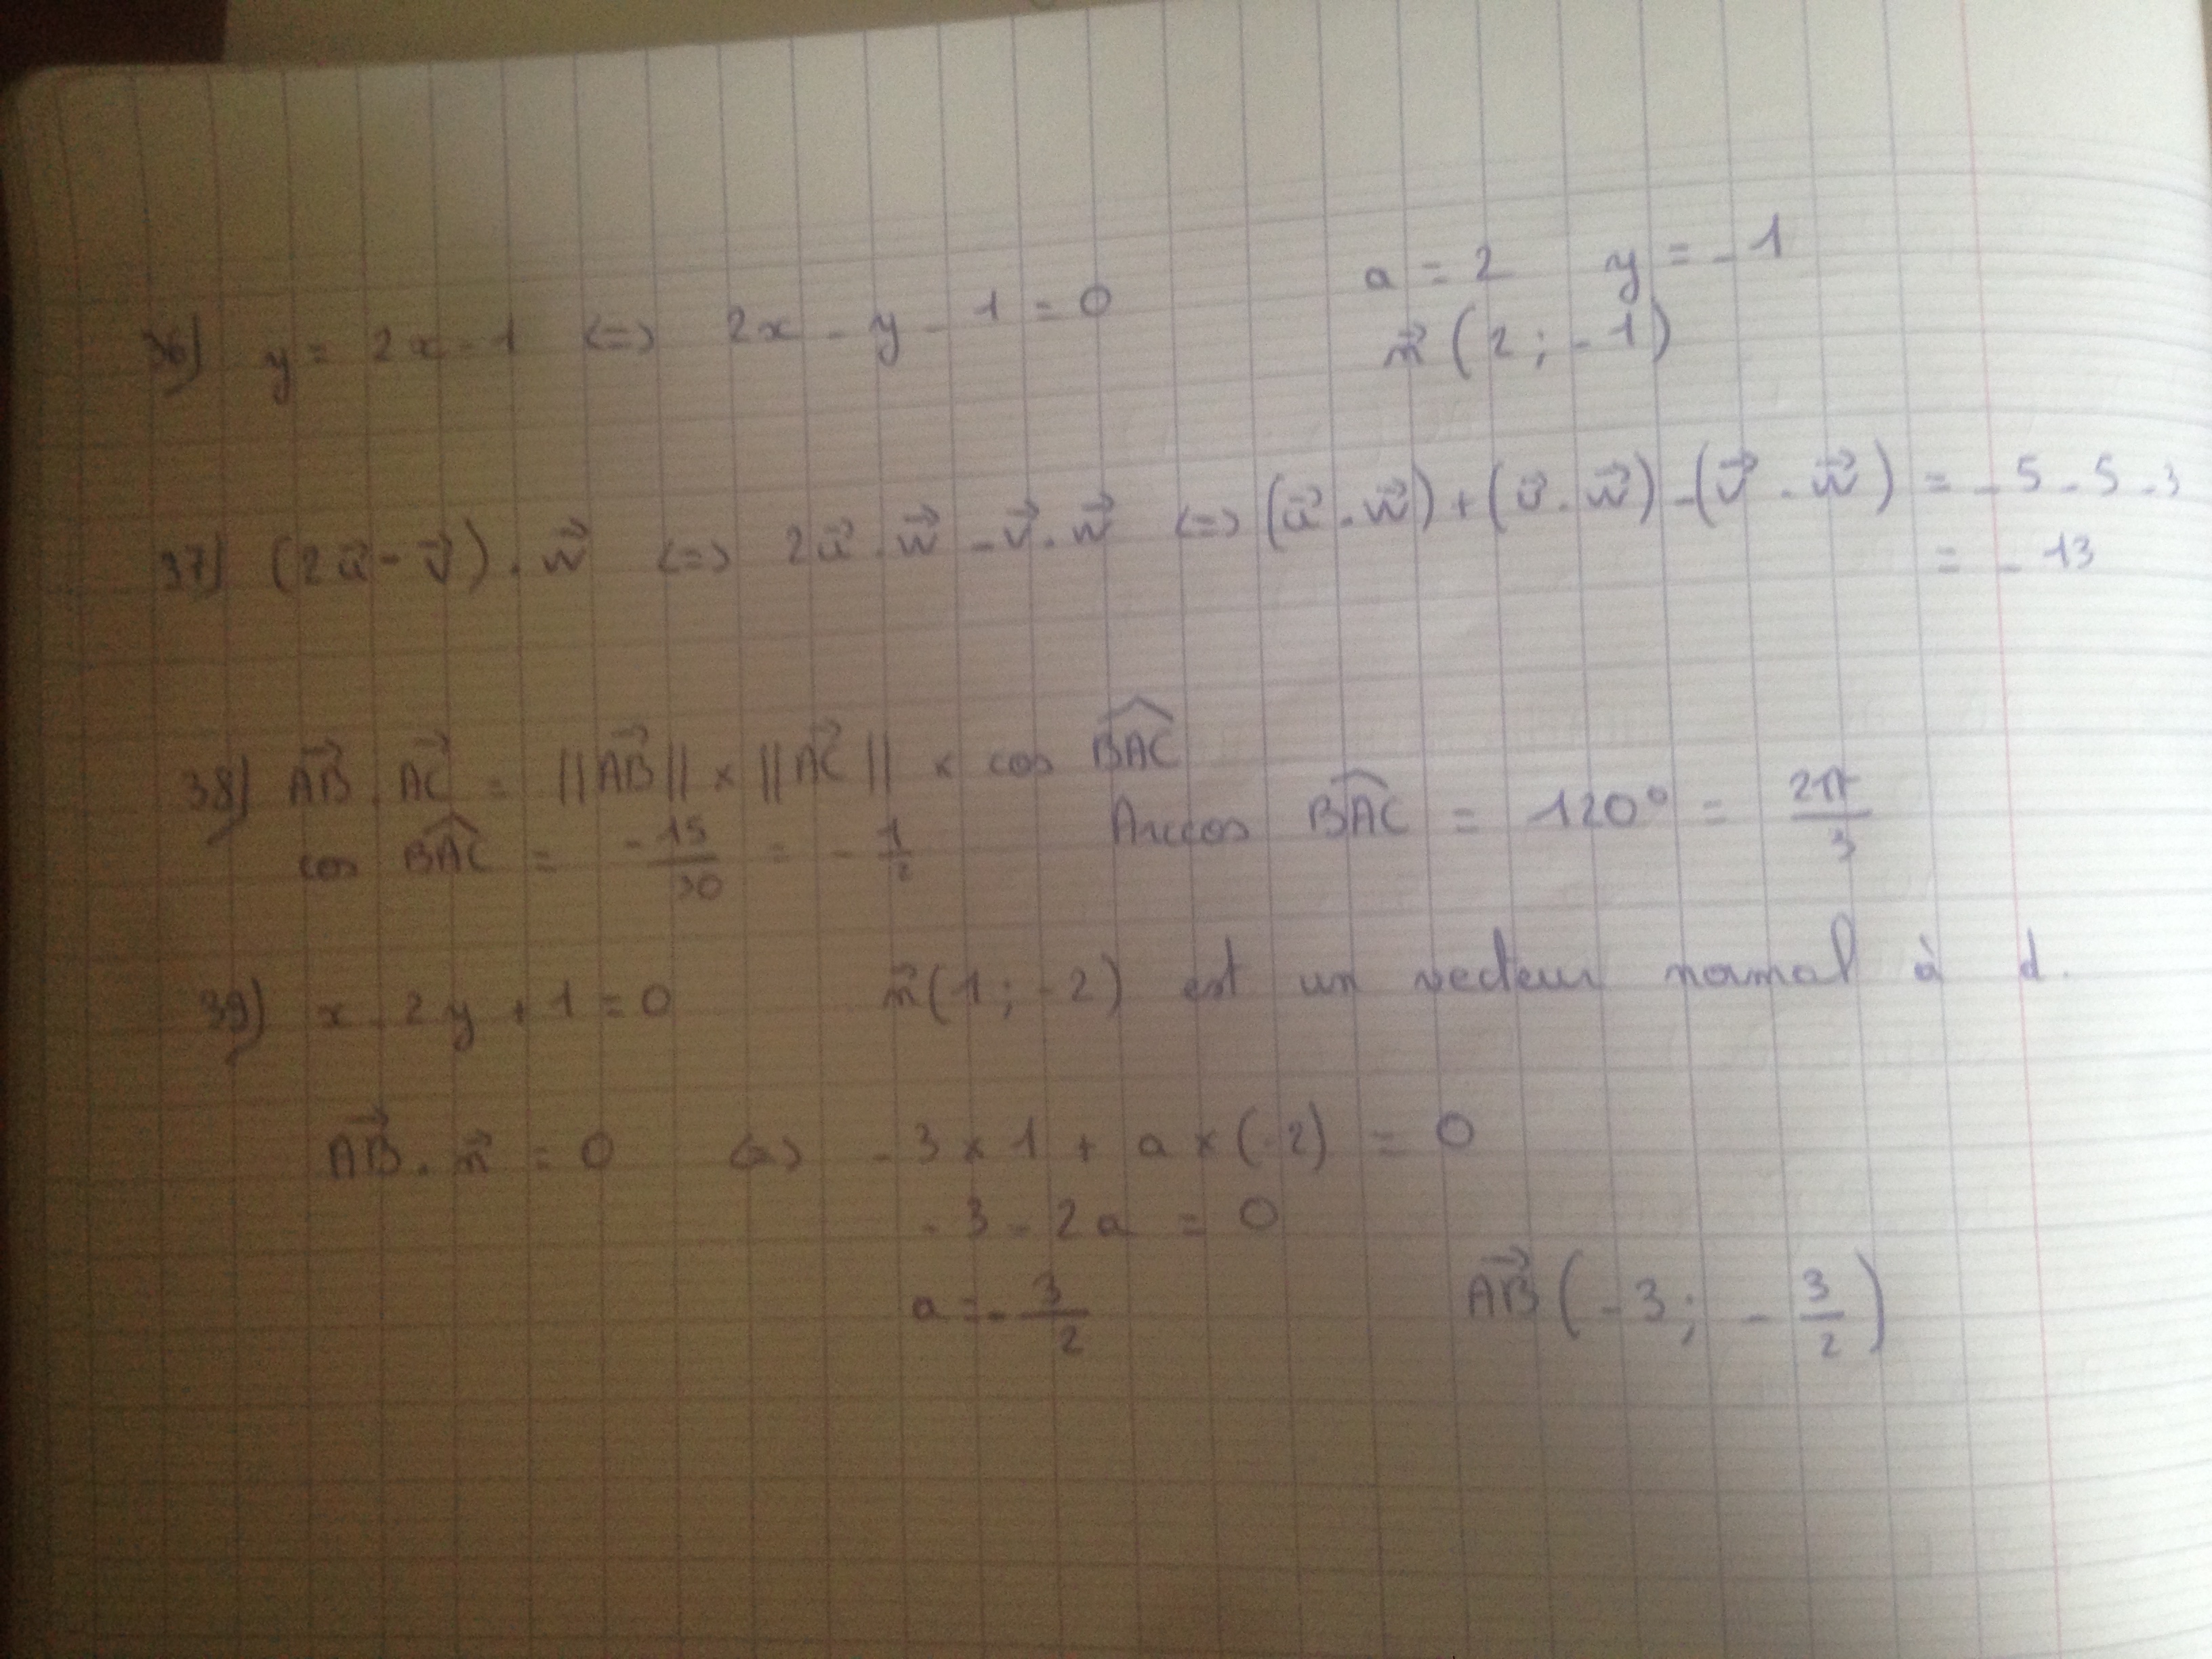 36) y = 2x - 1 <=> 2x - y - 1 = 0 a = 2 y = - 1
n⃗ (2 ; - 1)
37) (2u⃗ - v⃗) . w⃗ <=> 2u⃗ . w⃗ - v⃗ . w⃗ <=> (u⃗ . w⃗) + (u⃗ . w⃗) - (v⃗ . w⃗) = - 5 - 5 - 3
= - 13
38) AB⃗ . AC⃗ = ||AB⃗|| x ||AC⃗|| x cos BAC^
cos BAC^ = -15/30 = - 1/2 Arccos BAC^ = 120° = 2π/3
39) x - 2y + 1 = 0 n⃗ (1 ; - 2) est un vecteur normal à d.
AB⃗ . n⃗ = 0 <=> - 3 x 1 + a x (-2) = 0
- 3 - 2a = 0
a = - 3/2 AB⃗ (- 3 ; - 3/2)